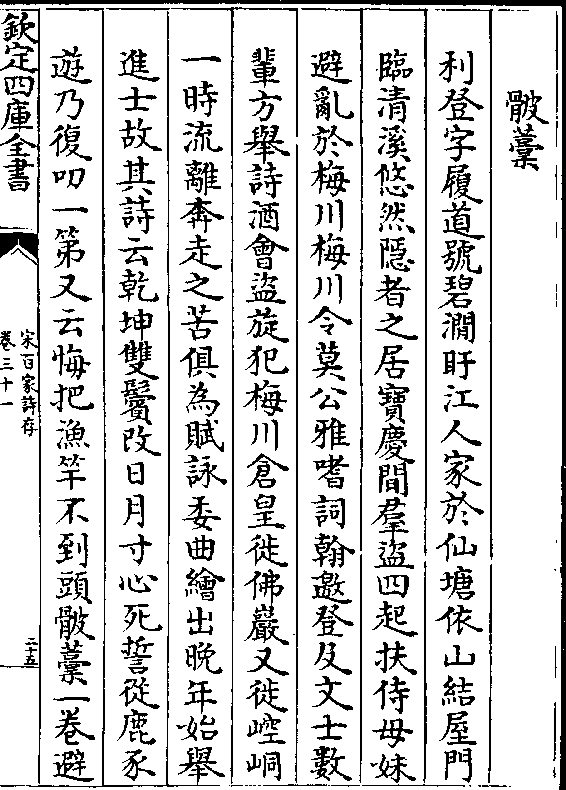 骳藳
利登字履道號碧澗盱江人家於仙塘依山結屋門
臨清溪悠然隱者之居寶慶間羣盜四起扶侍母妹
避亂於梅川梅川令莫公雅嗜詞翰邀登及文士數
輩方舉詩酒會盜旋犯梅川倉皇徙佛巖又徙崆峒
一時流離奔走之苦俱為賦詠委曲繪出晚年始舉
進士故其詩云乾坤雙鬢改日月寸心死誓從鹿豕
遊乃復叨一第又云悔把漁竿不到頭骳藳一卷避
欽定四庫全書
宋百家詩存
卷三十一
二十五